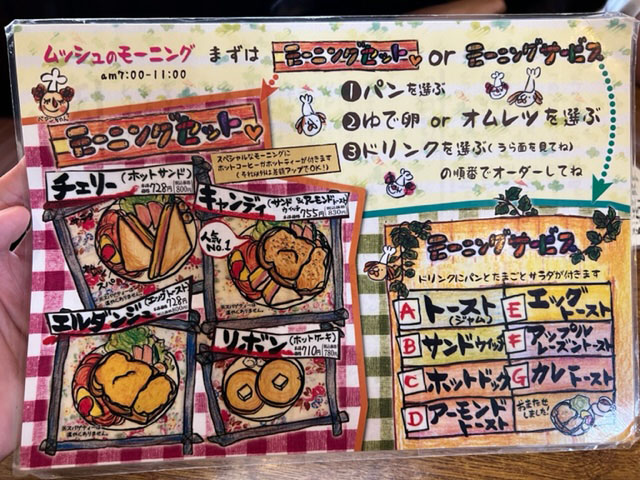 ムッシュのモーニング
am7:00-11:00
まずは モーニングセット or モーニングサービス
①パンを選ぶ
②ゆで卵 or オムレツを選ぶ
③ドリンクを選ぶ(うら面を見てね)
の順番でオーダーしてね
モーニングセット
スペシャルなモーニングに
ホットコーヒーかホットティーが付きます
チェリー(ホットサンド)
728円 800円
キャンディ(サンドウイッチ&アーモンドトースト)
755円 830円
人気No.1
エルダンジュ(エッグトースト)
728円 800円
リボン(ホットケーキ)
710円 780円
モーニングサービス
ドリンクにパンとたまごとサラダが付きます
A トースト(ジャム)
B サンドウィッチ
C ホットドック
D アーモンドトースト
E エッグトースト
F アップルレーズントースト
G カレートースト
おまたせしました!